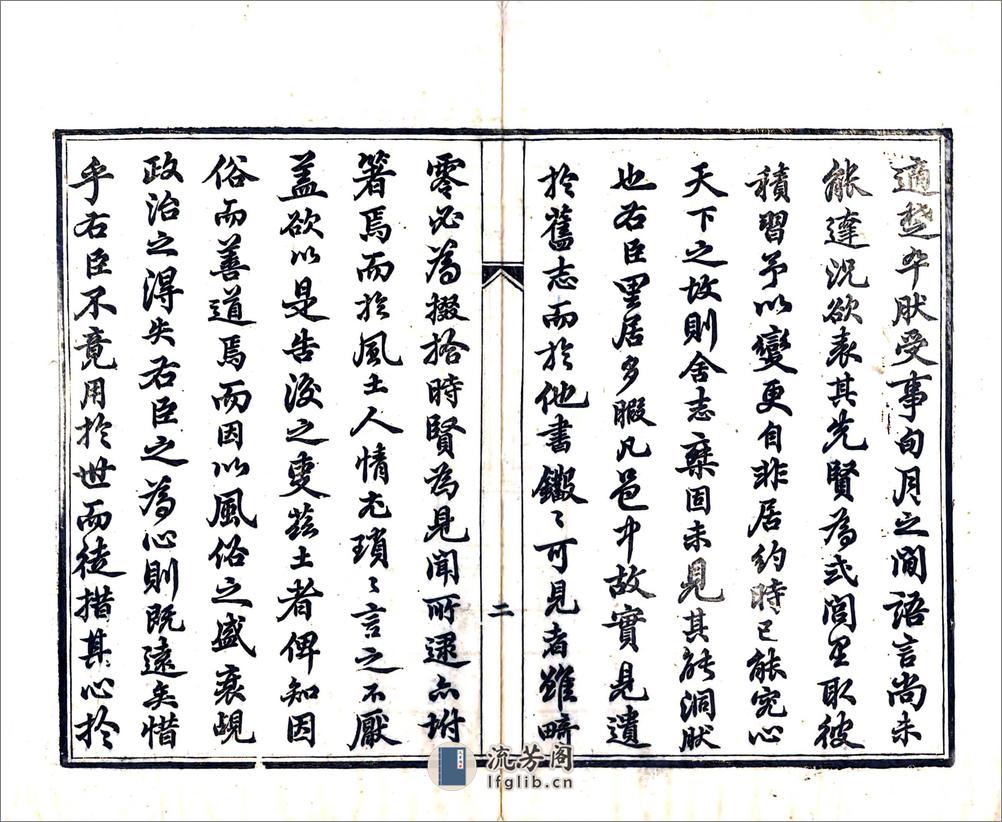 適楚卒肰受事旬月之間語言尚未
能達況欲表其先賢為式閭里取彼
積習予以變更自非居約時已能究心
天下之故則舍志棄固未見其能洞肰
也右臣里居多暇凡邑中故實見遺
於舊志而於他書綴〻可見者雖畸
零必為掇拾時賢為見聞所逮亦坿
箸焉而於風土人情尤瑣〻言之不厭
蓋欲以是告後之吏茲土者俾知因
俗而善道焉而因以風俗之盛衰覘
政治之淂失右臣之為心則既遠矣惜
乎右臣不竟用於世而徒措其心於
二
流芳阁
lfglib.cn